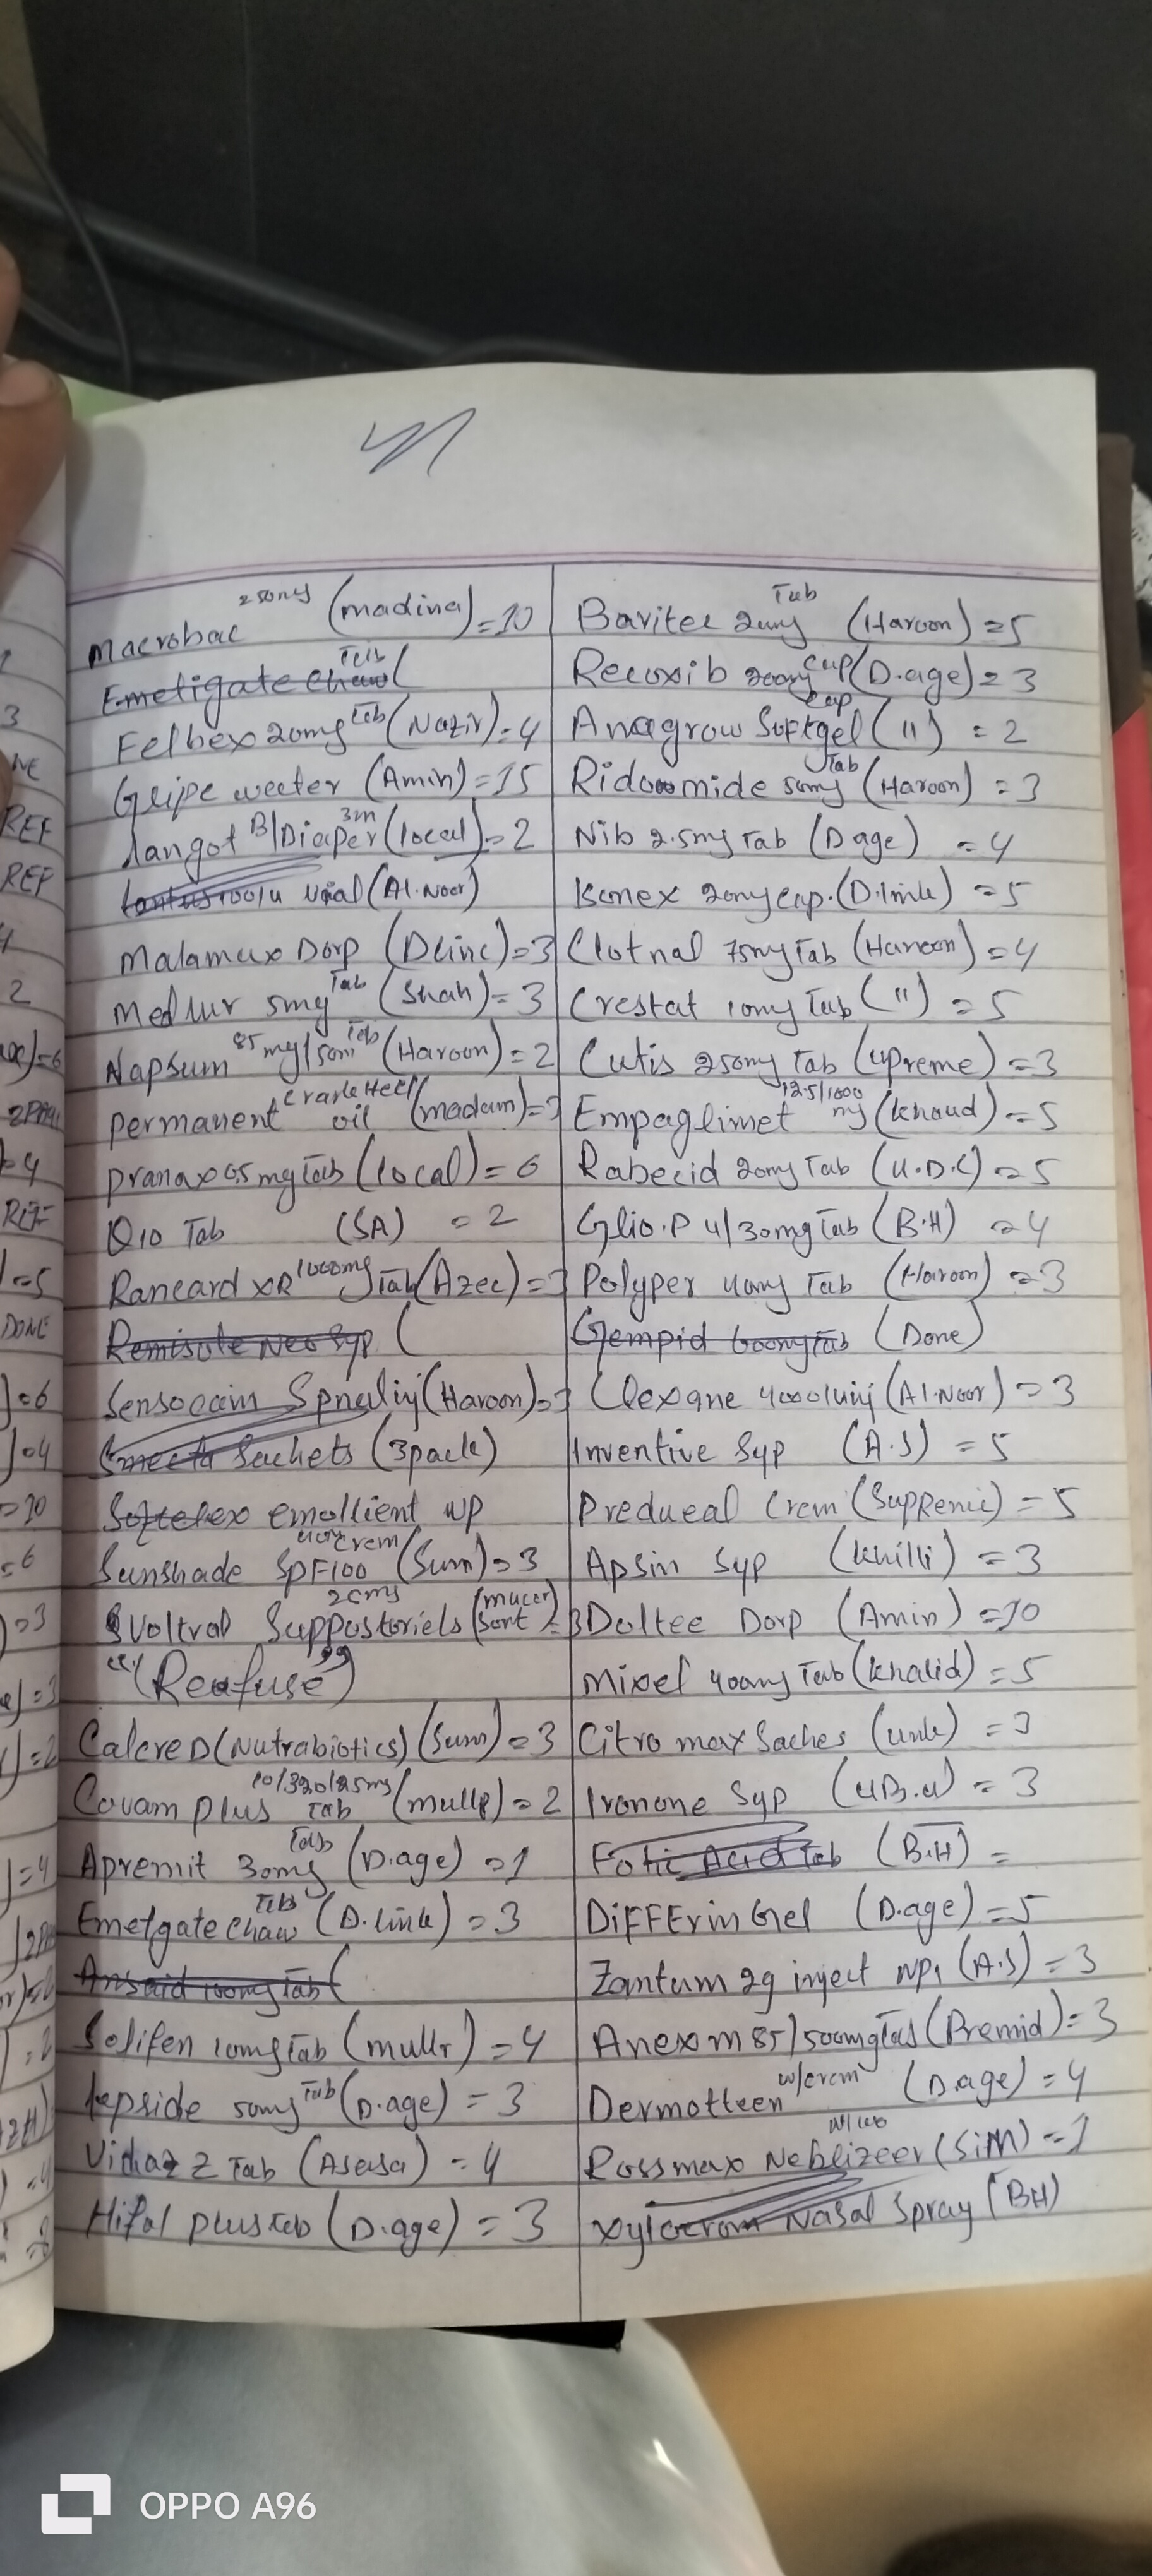 Macrobac 250mg (madina) = 10
Emetigate Chaw Tab (
Felbex 20mg Tab (Nazir) = 4
Gripe weeter (Amin) = 15
Langot B/Diaper 3m (local) = 2
Lantus 100/u Vial (Al.Noor)
Malamux Dorp (D linc) = 3
Medlur 5mg Tab (Shah) = 3
Napsum 85mg/50m Tab (Haroon) = 2
Permanent Crack Heel oil (madam) = 3
Pranax 0.5mg Tab (local) = 6
Q10 Tab (SA) = 2
Rancard XR 1000mg Tab (Azec) = 3
Remisole Neo Syp (
Sensocain Spnaliij (Haroon) = 3
Smecta Sachets (3pack)
Softelex emollient WP
Sunshade SPF100 crem (Sum) = 3
Voltral Suppostoriels (Sort = 3
"(Reafuse)"
Calcre D (Nutrabiotics) (Sum) = 3
Covam plus 10/320/25mg Tab (mullr) = 2
Apremit 30mg Tab (D.age) = 1
Emetgate Chaw Tab (D.link) = 3
Ansaid 100mg Tab (
Solifen 10mg Tab (mullr) = 4
Lepride 50mg Tab (D.age) = 3
Vidaz Z Tab (Asasa) = 4
Hifal plus Tab (D.age) = 3
Baritec 2mg Tab (Haroon) = 5
Recoxib 200mg Cap (D.age) = 3
Anagrow Softgel Cap (11) = 2
Ridomide 50mg Tab (Haroon) = 3
Nib 2.5mg Tab (D age) = 4
Konex 20mg cap. (D.link) = 5
Clotnal 75mg Tab (Haroon) = 4
Crestat 10mg Tab (11) = 5
Cutis 250mg Tab (upreme) = 3
Empaglimet 12.5/1000 mg (Khaud) = 5
Rabecid 20mg Tab (U.D.C) = 5
Glio.P 4/30mg Tab (B.H) = 4
Polyper 40mg Tab (Haroon) = 3
Gempid 600mg Tab (Done)
Clexane 4000Iuinj (Al.Noor) = 3
Inventive Syp (A.S) = 5
Predueal Crem (Suppremie) = 5
Apsin Syp (Khilli) = 3
Doltee Dorp (Amin) = 10
Mixel 400mg Tab (Khalid) = 5
Citro max Saches (unk) = 3
Ironone Syp = 3
Folic Acid Tab (B.H) =
DiFFErin Gel (D.age) = 5
Zantum 2g inject (A.S) = 3
Anex m 85/500mg Tab (Premid) = 3
Dermotteen w/crem (D.age) = 4
Rossmax Neblizeer (SiM) = 1
Nasal Spray (BH)
OPPO A96